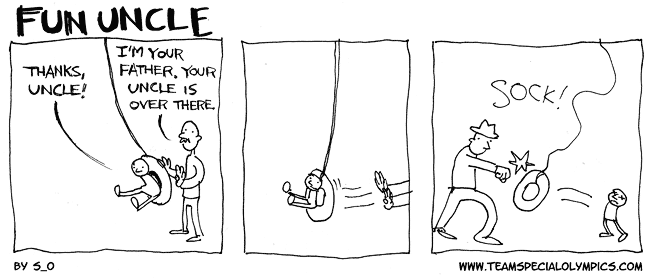 FUN UNCLE
THANKS,
UNCLE!
I'M YOUR
FATHER. YOUR
UNCLE IS
OVER THERE.
SOCK!
BY S_O
WWW.TEAMSPECIALOLYMPICS.COM